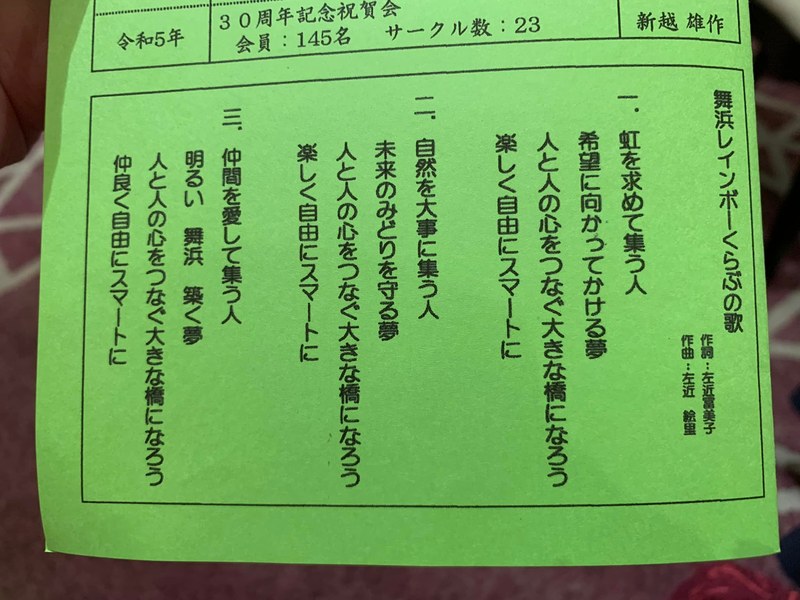 令和5年
３０周年記念祝賀会
会員：145名　サークル数：23
新越 雄作
舞浜レインボーくらぶの歌
作詞：左近富美子
作曲：左近　絵里
一．虹を求めて集う人
希望に向かってかける夢
人と人の心をつなぐ大きな橋になろう
楽しく自由にスマートに
二．自然を大事に集う人
未来のみどりを守る夢
人と人の心をつなぐ大きな橋になろう
楽しく自由にスマートに
三．仲間を愛して集う人
明るい　舞浜　築く夢
人と人の心をつなぐ大きな橋になろう
仲良く自由にスマートに